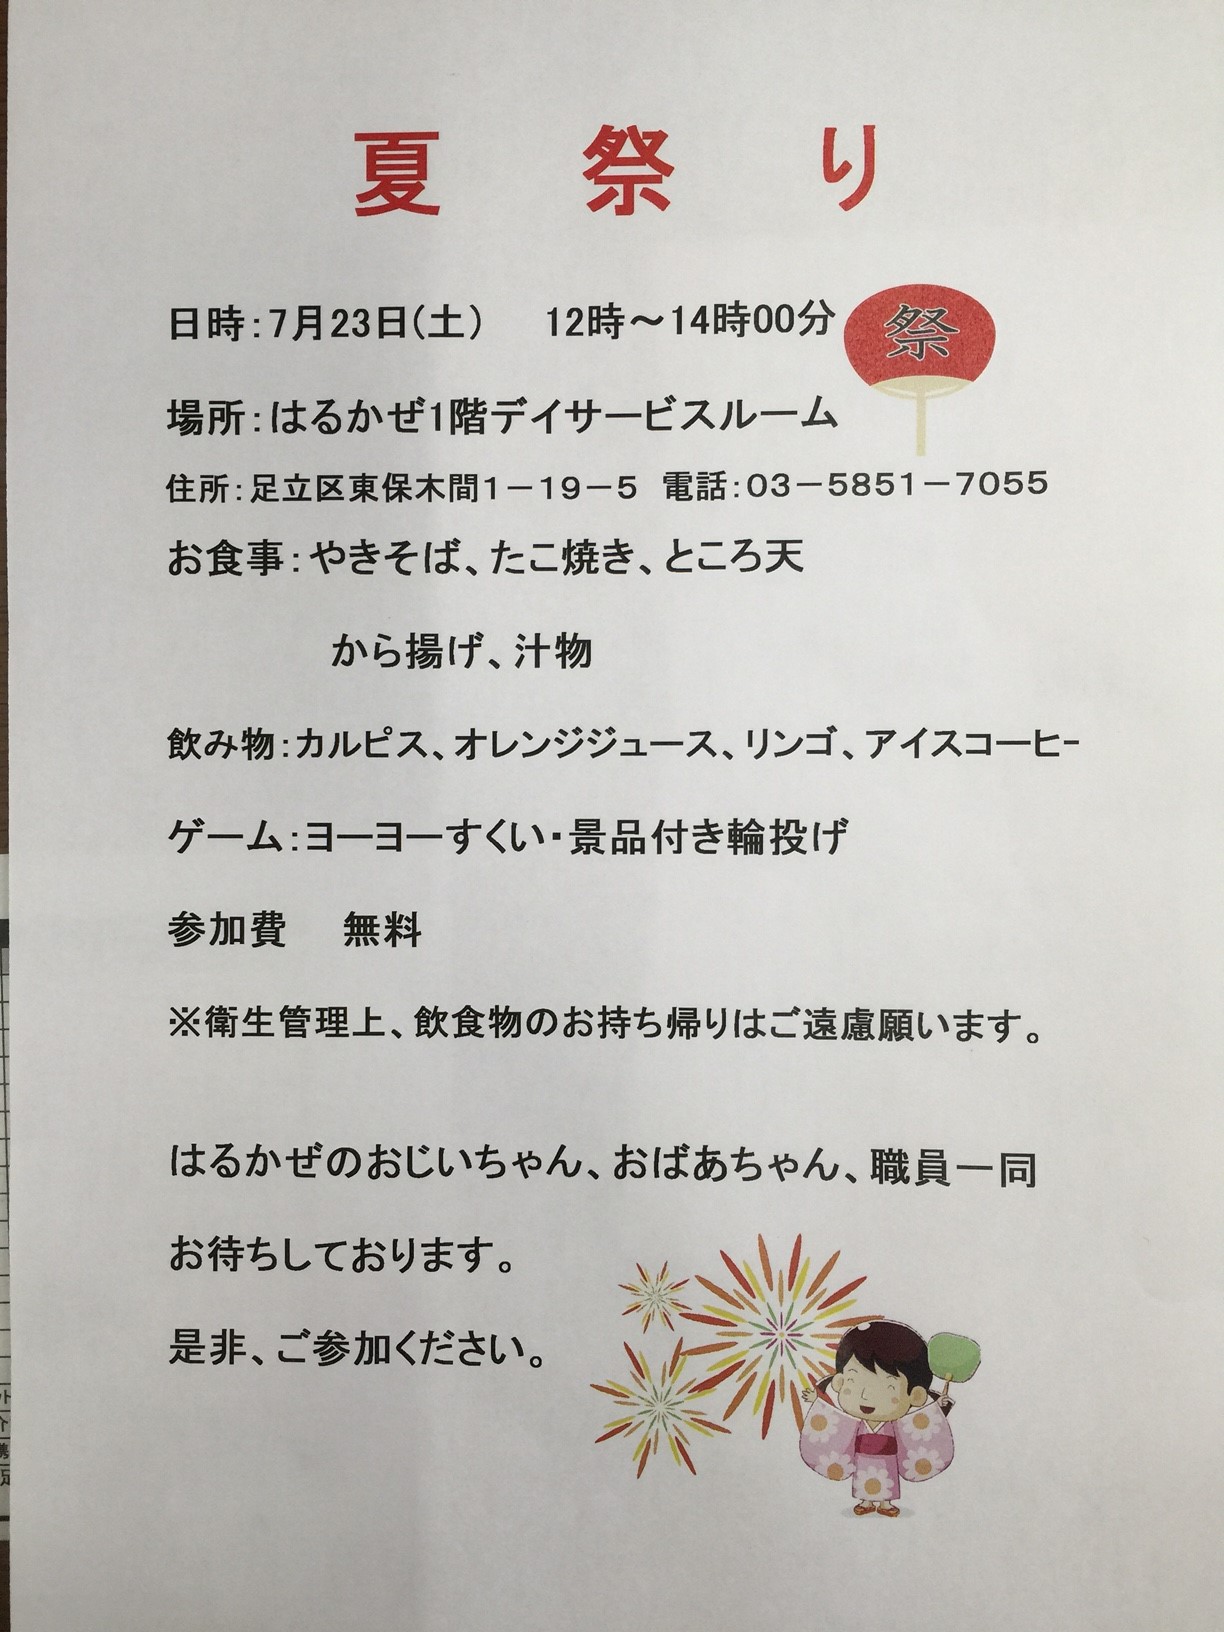 夏祭り
日時：7月23日（土）　12時～14時00分
祭
場所：はるかぜ1階デイサービスルーム
住所：足立区東保木間1－19－5　電話：03－5851－7055
お食事：やきそば、たこ焼き、ところ天
から揚げ、汁物
飲み物：カルピス、オレンジジュース、リンゴ、アイスコーヒー
ゲーム：ヨーヨーすくい・景品付き輪投げ
参加費　無料
※衛生管理上、飲食物のお持ち帰りはご遠慮願います。
はるかぜのおじいちゃん、おばあちゃん、職員一同
お待ちしております。
是非、ご参加ください。